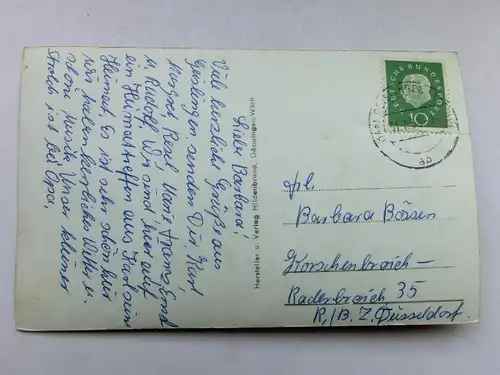 Liebe Barbara!
Viele herzliche Grüße aus
Geislingen senden Dir Karl,
Margot, Resel, Marie Franz Emil
u. Rudolf. Wir sind hier auf
ein Heimattreffen aus Karl seine
Heimat. Es ist sehr schön hier
wir haben herrliches Wetter u.
Unser kleiner
Strolch ist bei Opa.
Hersteller u. Verlag Hildenbrand, Göppingen/Württ
DEUTSCHE BUNDESPOST
10
ab
Frl.
Barbara Bössen
Korschenbroich-
Raderbroich 35
R,/B. Z. Düsseldorf